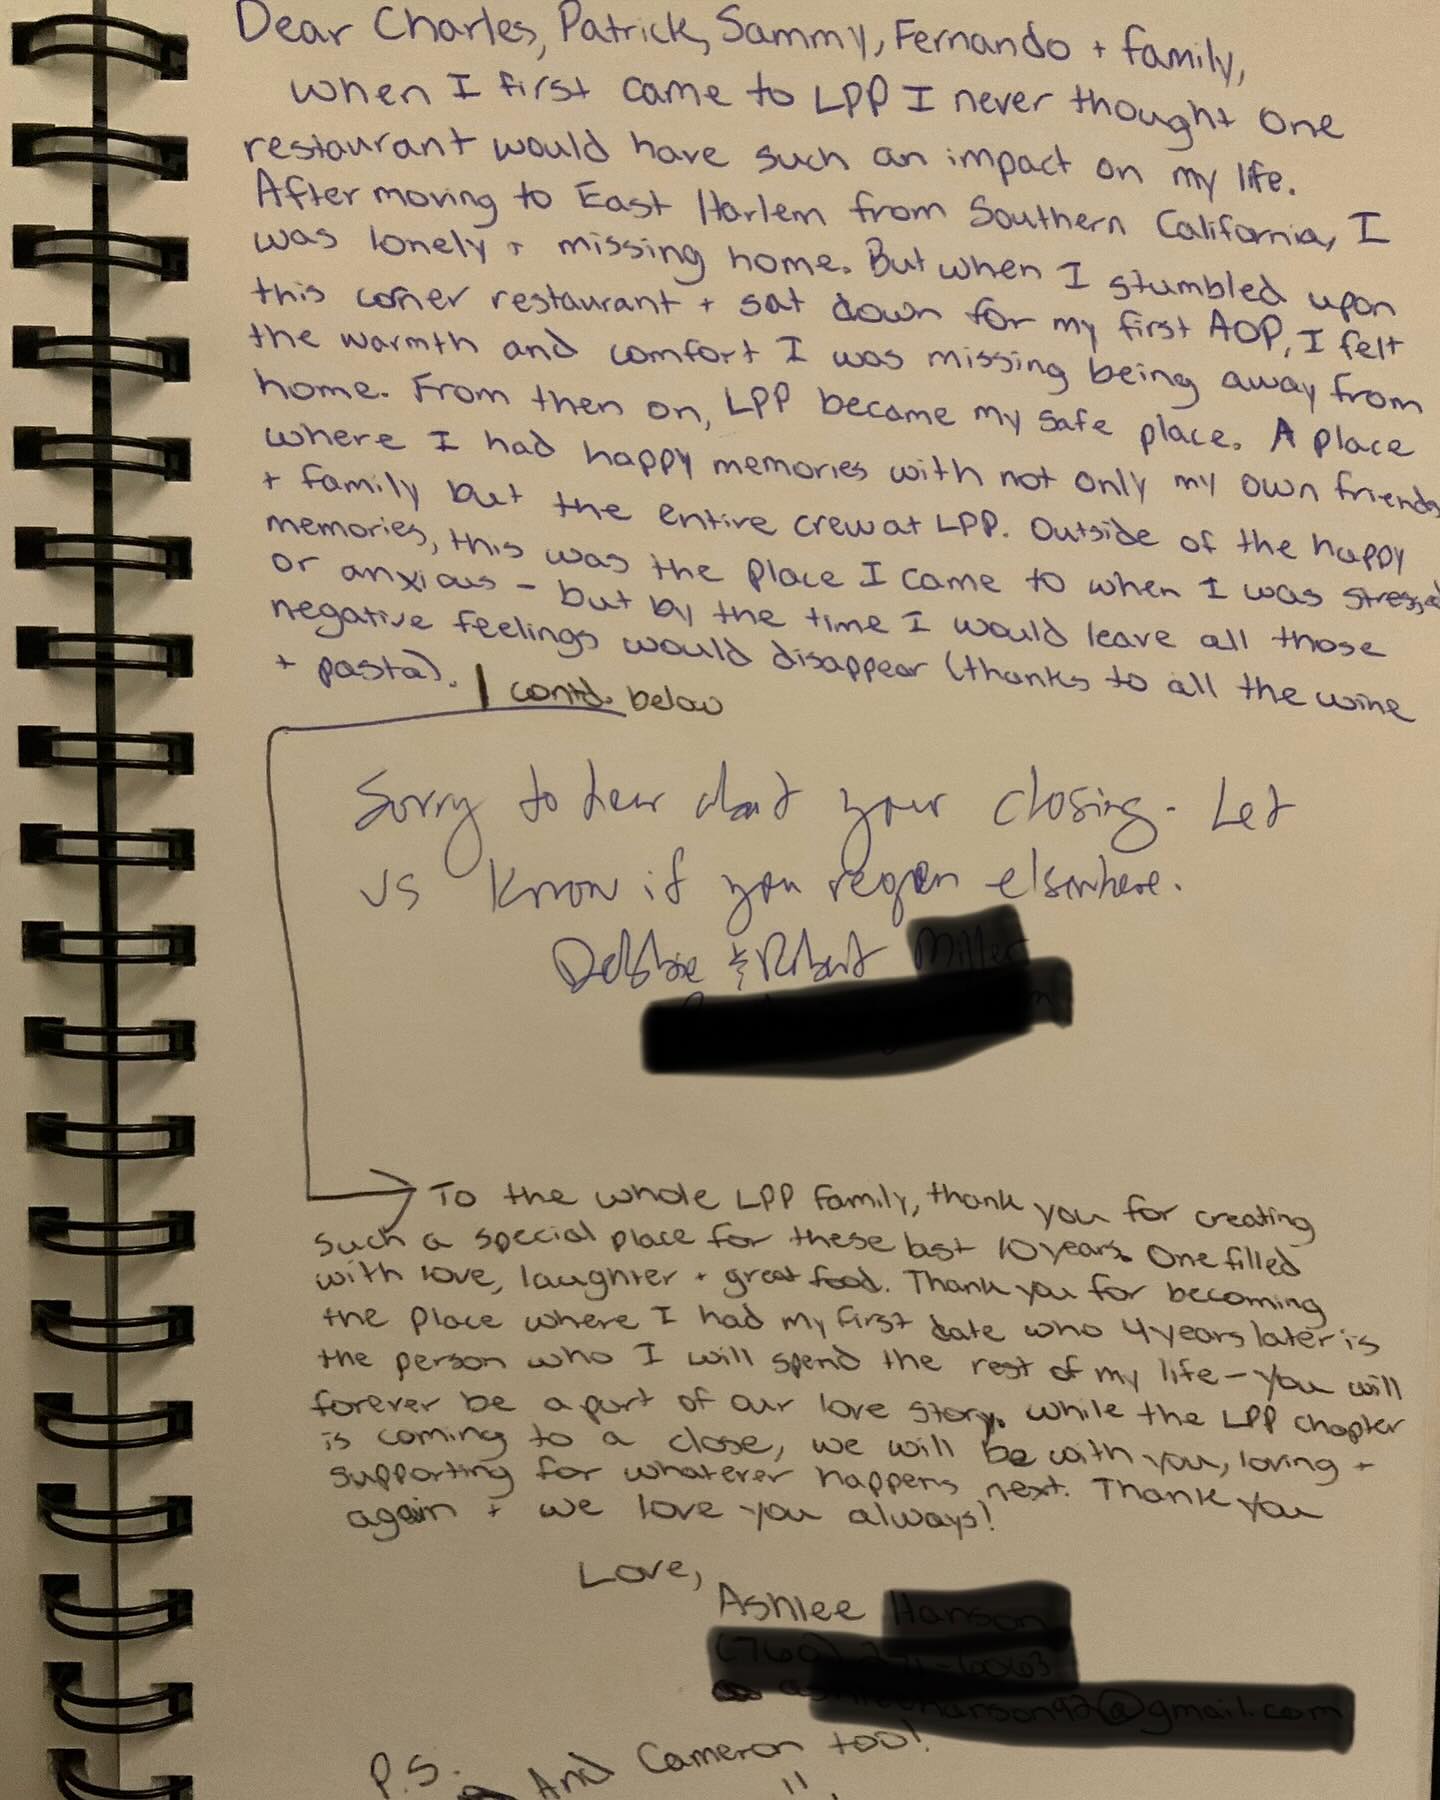 Dear Charles, Patrick, Sammy, Fernando + family,
when I first came to LPP I never thought one
restaurant would have such an impact on my life.
After moving to East Harlem from Southern California, I
was lonely + missing home. But when I stumbled upon
this corner restaurant + sat down for my first AOP, I felt
the warmth and comfort I was missing being away from
home. From then on, LPP became my safe place. A place
where I had happy memories with not only my own friends
+ family but the entire crew at LPP. Outside of the happy
memories, this was the place I came to when I was stressed
or anxious - but by the time I would leave all those
negative feelings would disappear (thanks to all the wine
+ pasta). | contd. below
Sorry to hear about your closing. Let
us know if you reopen elsewhere.
Debbie & Robert
To the whole LPP family, thank you for creating
such a special place for these last 10 years. One filled
with love, laughter + great food. Thank you for becoming
the place where I had my first date who 4 years later is
the person who I will spend the rest of my life - you will
forever be a part of our love story. While the LPP chapter
is coming to a close, we will be with you, loving +
supporting for whatever happens next. Thank you
again + we love you always!
Love,
Ashlee
P.S. And Cameron too!